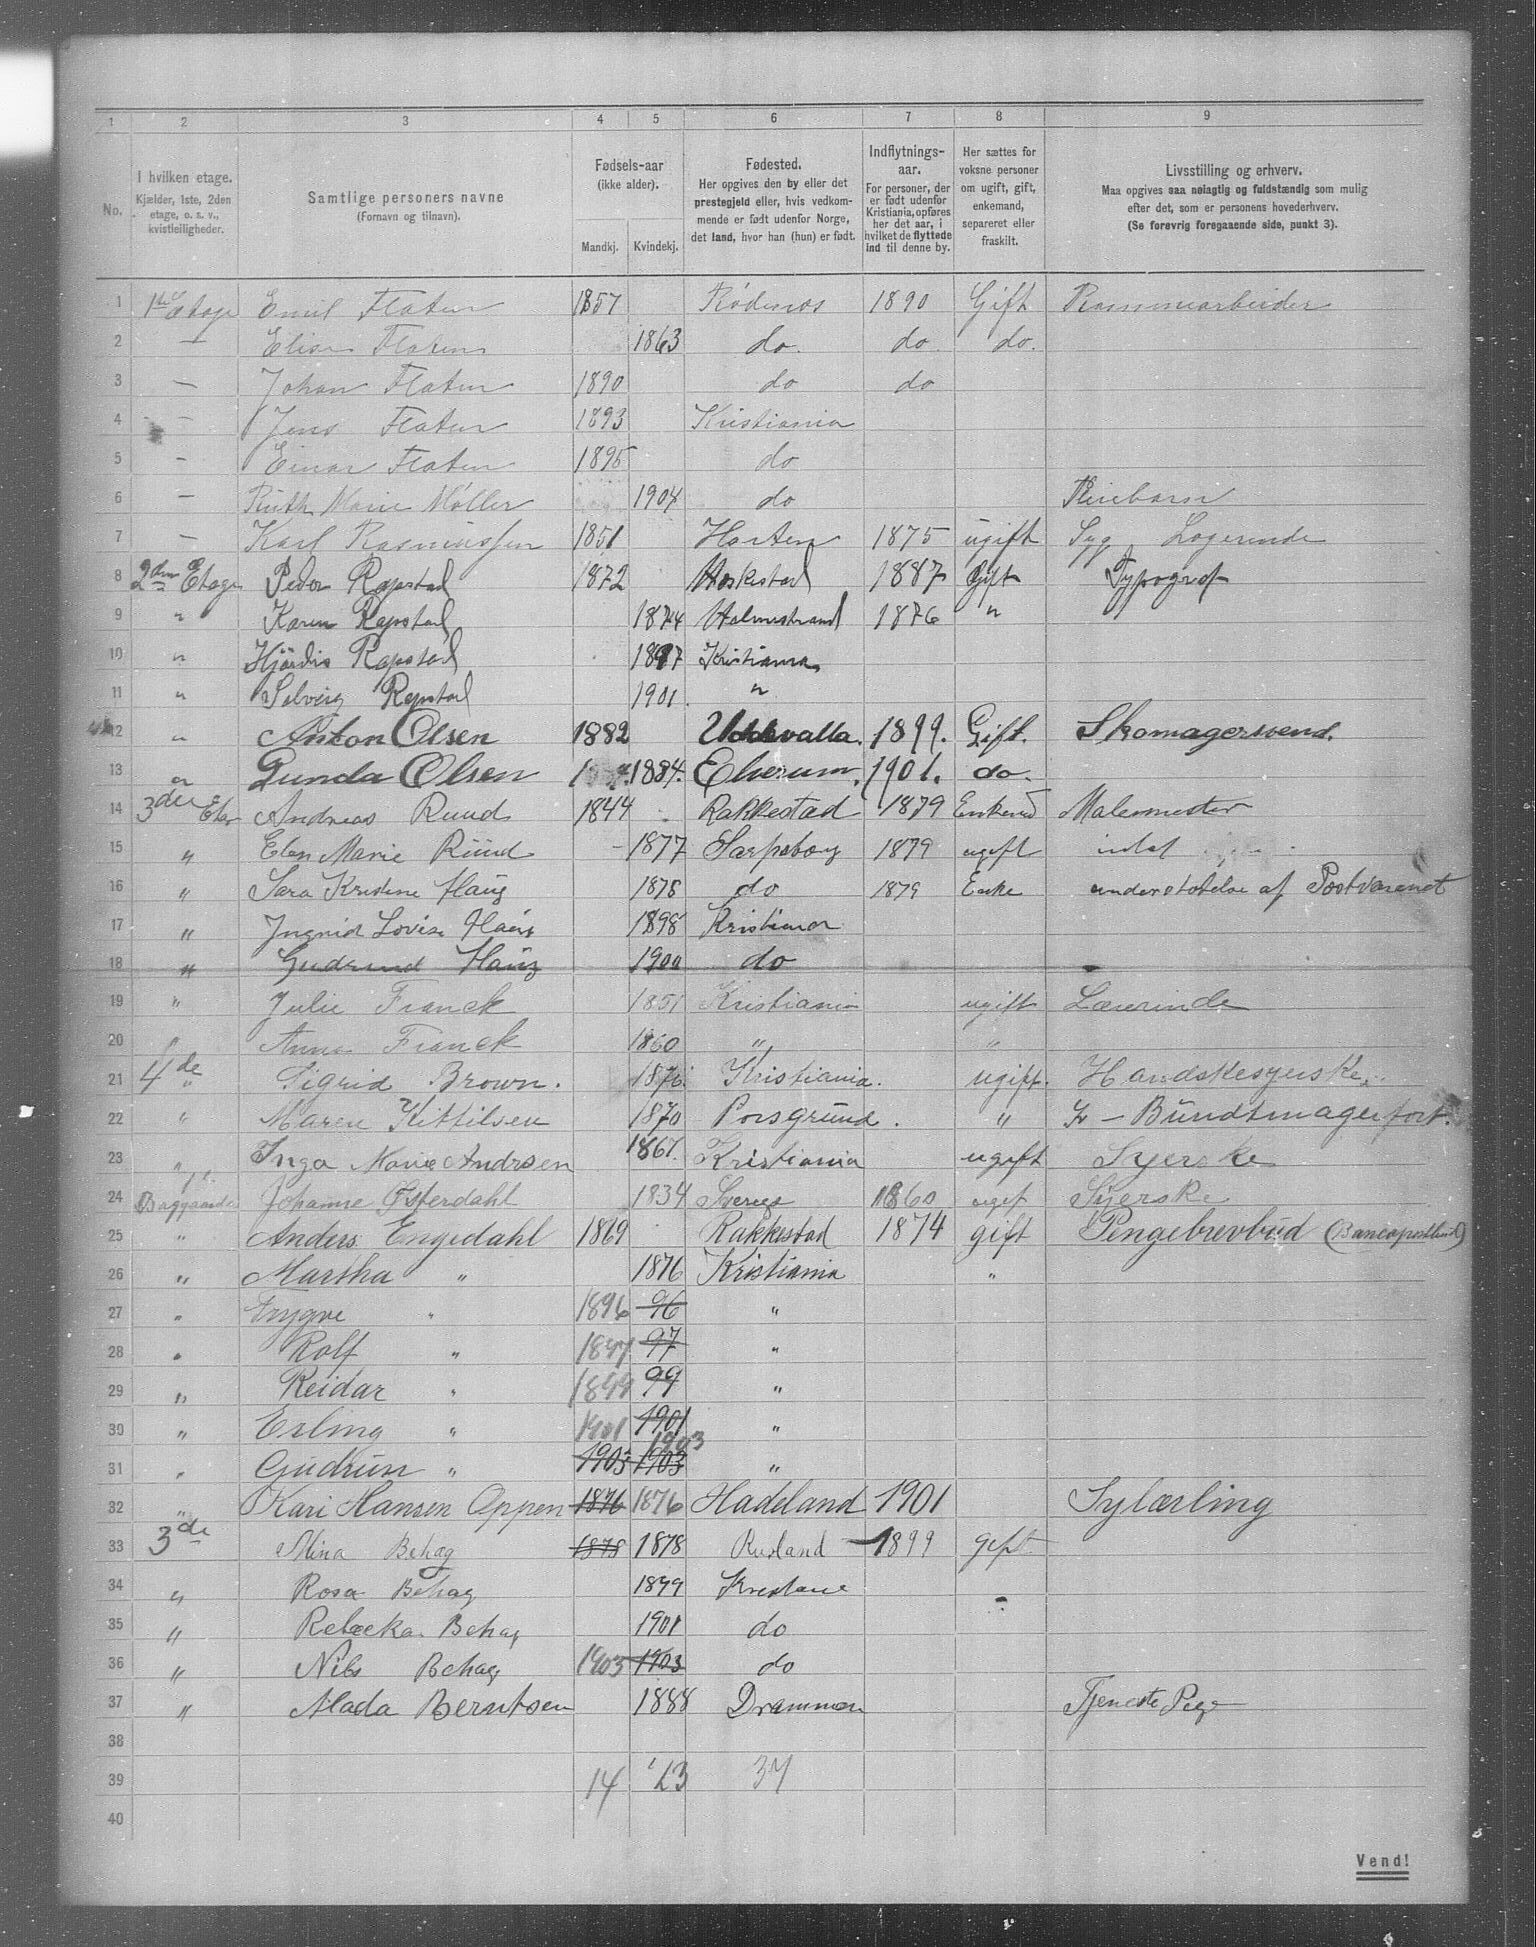 1 2 3 4 5 6 7 8 9
No. I hvilken etage. Kjælder, 1ste, 2den etage, o. s. v., kvistleiligheder. Samtlige personers navne (Fornavn og tilnavn). Fødsels-aar (ikke alder). Mandkj. Kvindekj. Fødested. Her opgives den by eller det prestegjeld eller, hvis vedkommende er født udenfor Norge, det land, hvor han (hun) er født. Indflytnings-aar. For personer, der er født udenfor Kristiania, opføres her det aar, i hvilket de flyttede ind til denne by. Her sættes for voksne personer om ugift, gift, enkemand, separeret eller fraskilt. Livsstilling og erhverv. Maa opgives saa nøiagtig og fuldstændig som mulig efter det, som er personens hovederhverv. (Se forøvrig foregaaende side, punkt 3).
1 1ste Etage Emil Flaten 1857 Rødenes 1890 Gift
2 — Elise Flaten 1863 do. do. do.
3 — Johan Flaten 1890 do do
4 — Jens Flaten 1893 Kristiania
5 — Einar Flaten 1895 do
6 — Ruth Marie Møller 1904 do Pleiebarn
7 — Karl Rasmussen 1851 Horten 1875 ugift Syg Logerende
8 2den Etage Peder Rapstad 1872 1887 Gift Typograf
9 " Karen Rapstad 1874 Holmestrand 1876 "
10 " Hjørdis Rapstad 1897 Kristiania
11 " Solveig Rapstad 1901 "
12 " Anton Olsen 1882 Uddevalla. 1899. Gift. Skomagersvend.
13 " Gunda Olsen 1884. Elverum. 1901. do.
14 3die Etag Andreas Ruud 1844 Rakkestad 1879 Enkemd Malermester
15 " Elen Marie Rüud 1877 Sarpsborg 1879 ugift
16 " Sara Kristine Haüg 1875 do 1879 Enke understøtelse af
17 " Ingrid Lovise Haüg 1898 Kristiania
18 " Gudrund Haüg 1900 do
19 " Julie Franck 1851 Kristiania ugift Lærerinde
20 " Anna Franck 1860 " "
21 4de " Sigrid Brown. 1876. Kristiania. ugift. Handskesyerske.
22 " Maren Kittilsen 1870 Porsgrund. " — Bündtmagerfort.
23 " Inga Marie Andrsen 1867. Kristiania ugift Syerske
24 Baggaarden Johanne Østerdahl 1834 Sverige 1860 ugift Syerske
25 " Anders Engedahl 1869 Rakkestad 1874 gift Pengebrevbud (Bancopostbud)
26 " Martha " 1876 Kristiania "
27 " Trygve " 1896 96 "
28 " Rolf " 1897 97 "
29 " Reidar " 1899 99 "
30 " Erling " 1901 1901 "
31 " Gudrun " 1903 1903 1903 "
32 " Kari Hansen Oppen 1876 1876 Hadeland 1901 Sylærling
33 3de Mina Behag 1878 1878 Rusland 1899 gift
34 " Rosa Behag 1899 Kristiane
35 " Rebecka Behag 1901 do
36 " Nils Behag 1903 1903 do
37 " Alada Berntsen 1888 Drammen Tjeneste Pige
38
39 14 23 37
40
Vend!